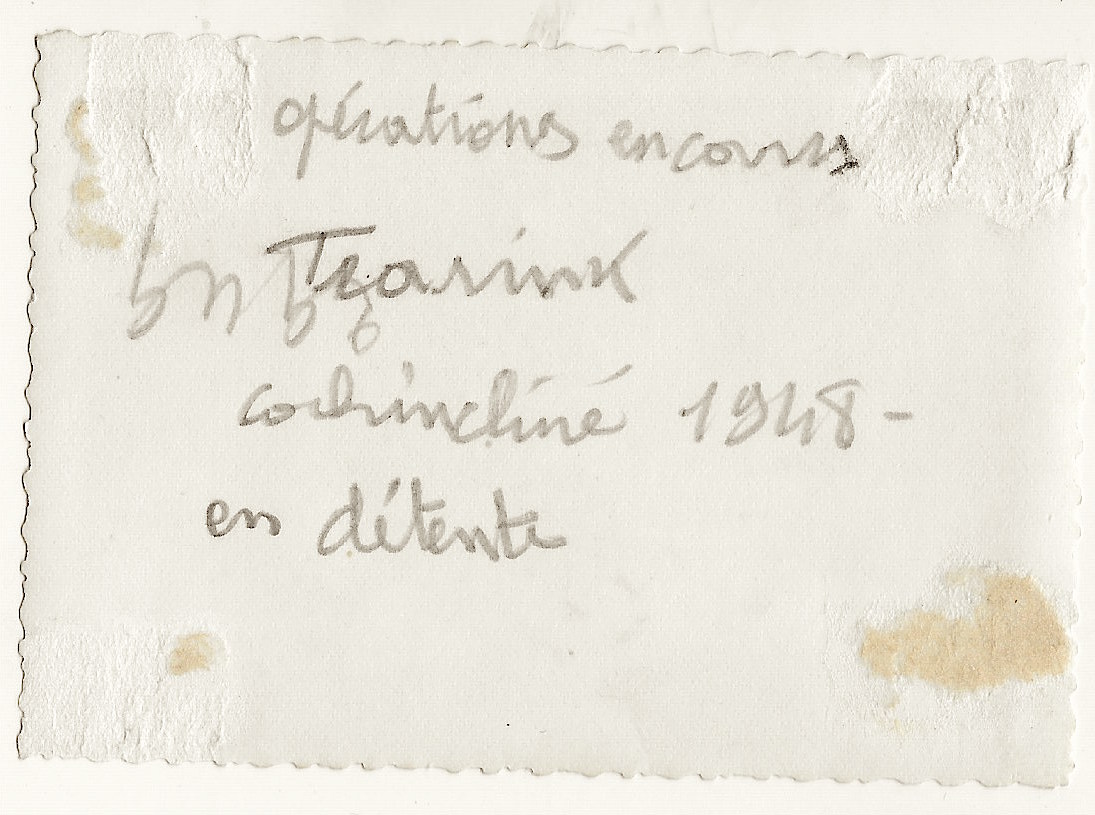 opérations en cours
Tearink
cochinchine 1948 -
en détente